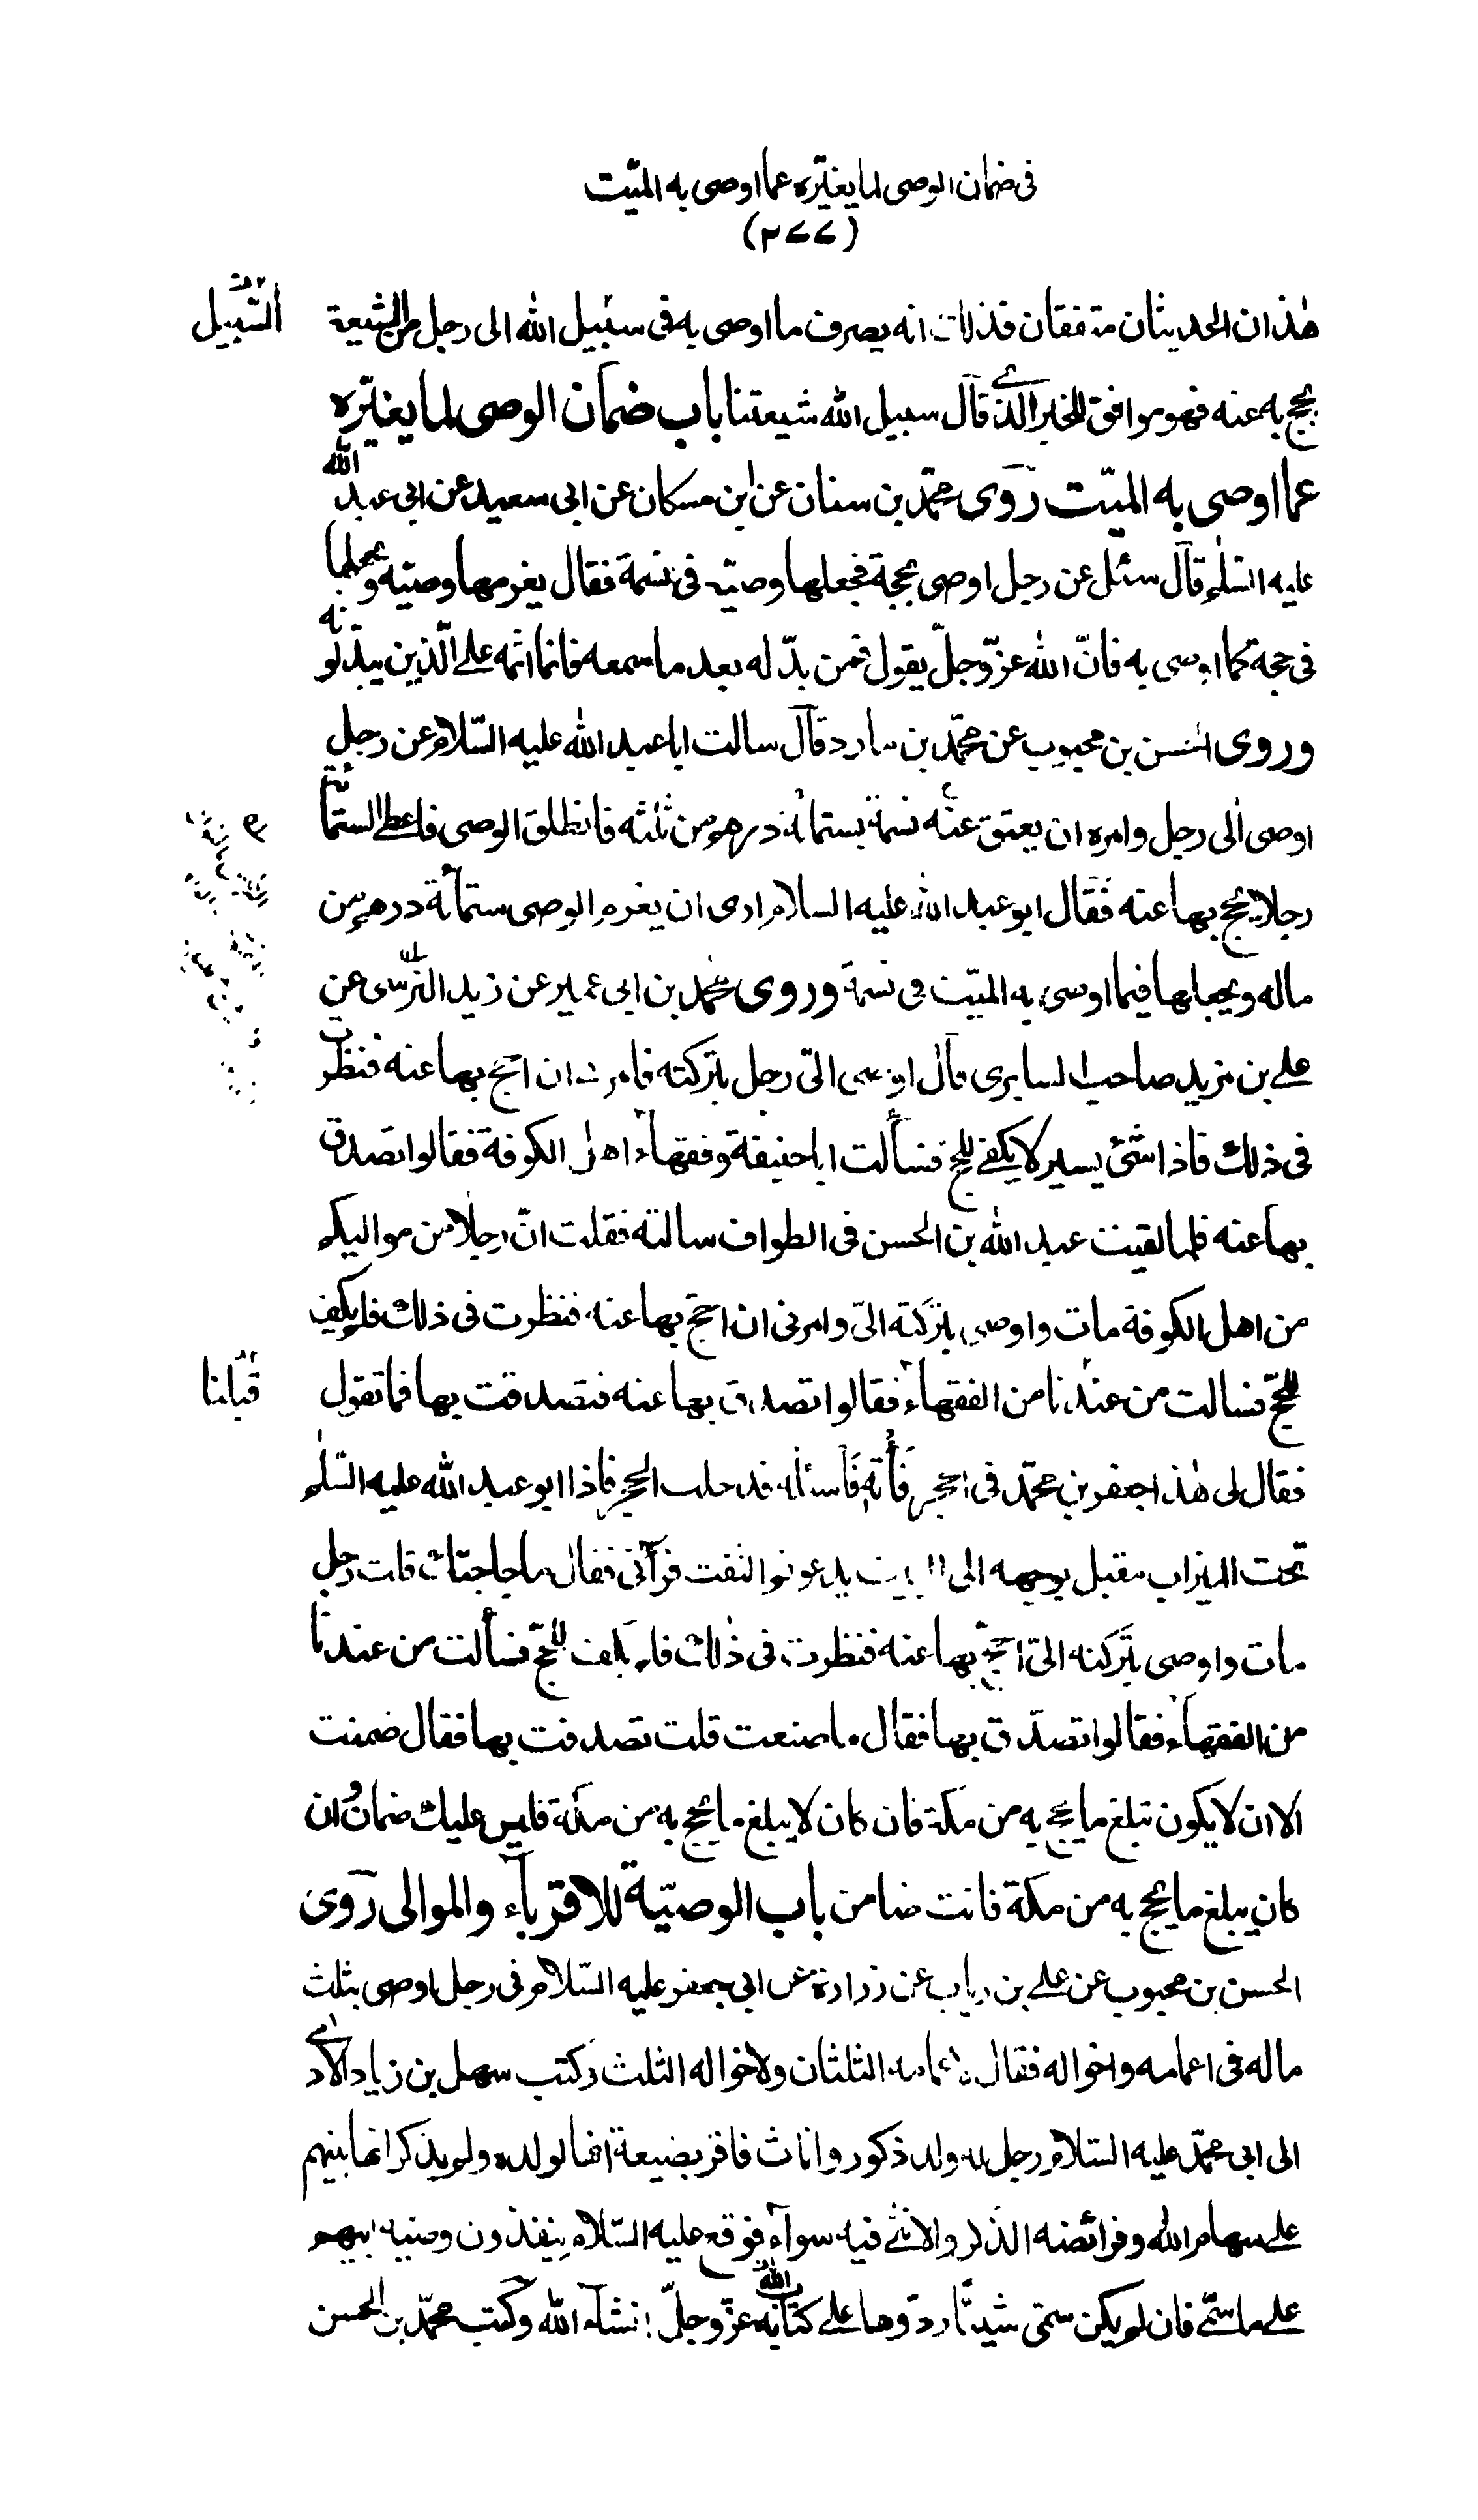 فى ضمان الوصى لما يغيّره عما اوصى به الميّت
(٢٧٧)
هٰذان الحديثان متفقان فذلك انه يصرف ما اوصى به فى سبيل الله الى رجل من الشيعة
السّبيل
يحج به عنه فهو موافق للخبر الّذى قال سبيل الله شيعتنا باب ضمان الوصى لما يغيّره
عما اوصى به الميّت روى محمّد بن سنان عن ابن مسكان عن ابى سعيد عن ابى عبد الله
عليه السّلٰم قال سئل عن رجل اوصى بحجة فجعلها وصيّه فى نسمة فقال يغرمها وصيّه ويجعلها
فى حجة كما اوصى به فانّ الله عزّ وجلّ يقول فمن بدّله بعد ما سمعه فانما اثمه على الّذين يبدّلونه
وروى الحسن بن محبوب عن محمّد بن مارد قال سالت ابا عبد الله عليه السّلام عن رجل
اوصى الى رجل وامره ان يعتق عنه نسمة بستمائة درهم من ثلثه فانطلق الوصى فاعطى الستّمائة
رجلا يحج بها عنه فقال ابو عبد الله عليه السلام ارى ان يغرم الوصى ستمائة درهم من
ماله ويجعلها فيما اوصى به الميّت فى نسمة وروى محمّد بن ابى عمير عن زيد النّرسى عن
على بن مزيد صاحب السابرى قال اوصى الىّ رجل بتركته فامرنى ان احج بها عنه فنظرت
فى ذلك فاذا شئ يسير لا يكفى للحج فسألت ابا حنيفة وفقهاء اهل الكوفة فقالوا تصدق
بها عنه فلما لقيت عبد الله بن الحسن فى الطواف سالته فقلت انّ رجلا من مواليكم
من اهل الكوفة مات واوصى بتركته الىّ وامرنى ان احجّ بها عنه فنظرت فى ذلك فلم يكف
للحجّ فسالت من عندنا من الفقهاء فقالوا تصدق بها عنه فتصدقت بها فما تقول
قبلنا
فقال لى هٰذا جعفر بن محمّد فى الحجر فأته فاسئله فدخلت الحجر فاذا ابو عبد الله عليه السّلٰم
تحت الميزاب مقبل بوجهه الى البيت يدعو ثم التفت فرآنى فقال ما حاجتك قلت رجل
مات واوصى بتركته الىّ احجّ بها عنه فنظرت فى ذٰلك فلم يكف للحجّ فسألت من عندنا
من الفقهاء فقالوا تصدّق بها فقال ما صنعت قلت تصدقت بها فقال ضمنت
الا ان لا يكون تبلغ ما يحج به من مكة فان كان لا يبلغ ما يحج به من مكة فليس عليك ضمان وان
كان يبلغ ما يحج به من مكة فانت ضامن باب الوصيّة للاقرباء والموالى روى
الحسن بن محبوب عن على بن رياب عن زرارة عن ابى جعفر عليه السّلام فى رجل اوصى بثلث
ماله فى اعمامه واخواله فقال لاعمامه الثلثان ولاخواله الثلث وكتب سهل بن زياد الادمى
الى ابى محمّد عليه السّلام رجل له ولد ذكور واناث فاقر بضيعة انها لولده ولم يذكر انها بينهم
على سهام الله وفرائضه الذكر والانثى فيه سواء فوقع عليه السّلام ينفذون وصية ابيهم
على ما سمّى فان لم يكن سمّى شيئًا ردّوها على كتاب الله عزّ وجلّ انشاء الله وكتب محمّد بن الحسن